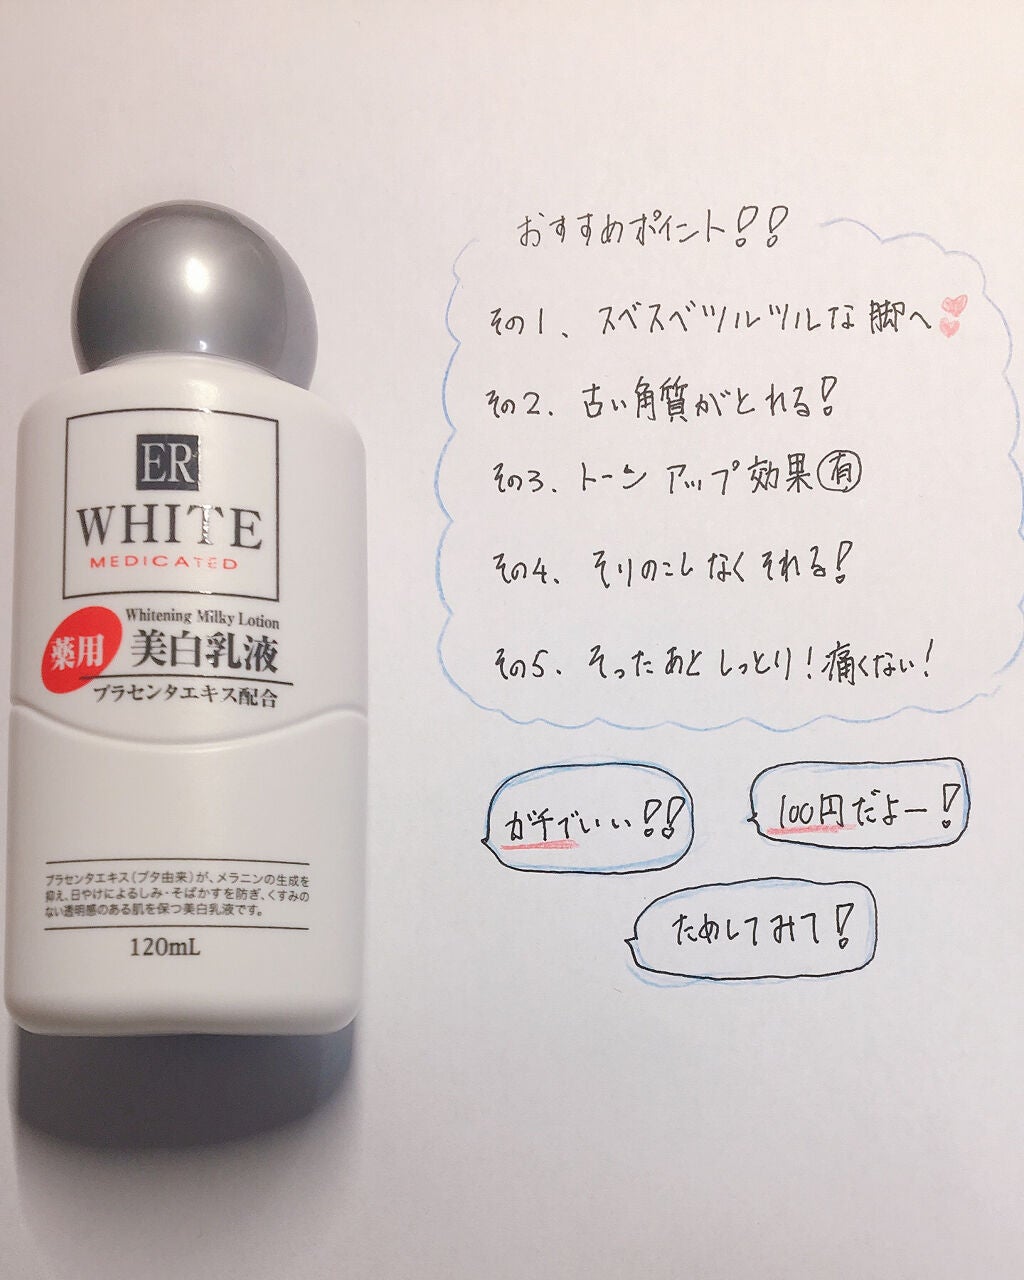 ER
WHITE
MEDICATED
Whitening Milky Lotion
薬用
美白乳液
プラセンタエキス配合
プラセンタエキス(ブタ由来)が、メラニンの生成を
抑え、日やけによるしみ・そばかすを防ぎ、くすみの
ない透明感のある肌を保つ美白乳液です。
120mL
おすすめポイント!!
その1、スベスベツルツルな脚へ
その2、古い角質がとれる!
その3、トーンアップ効果有
その4、そりのこしなくそれる!
その5、そったあとしっとり!痛くない!
ガチでいい!!
100円だよー!
ためしてみて!